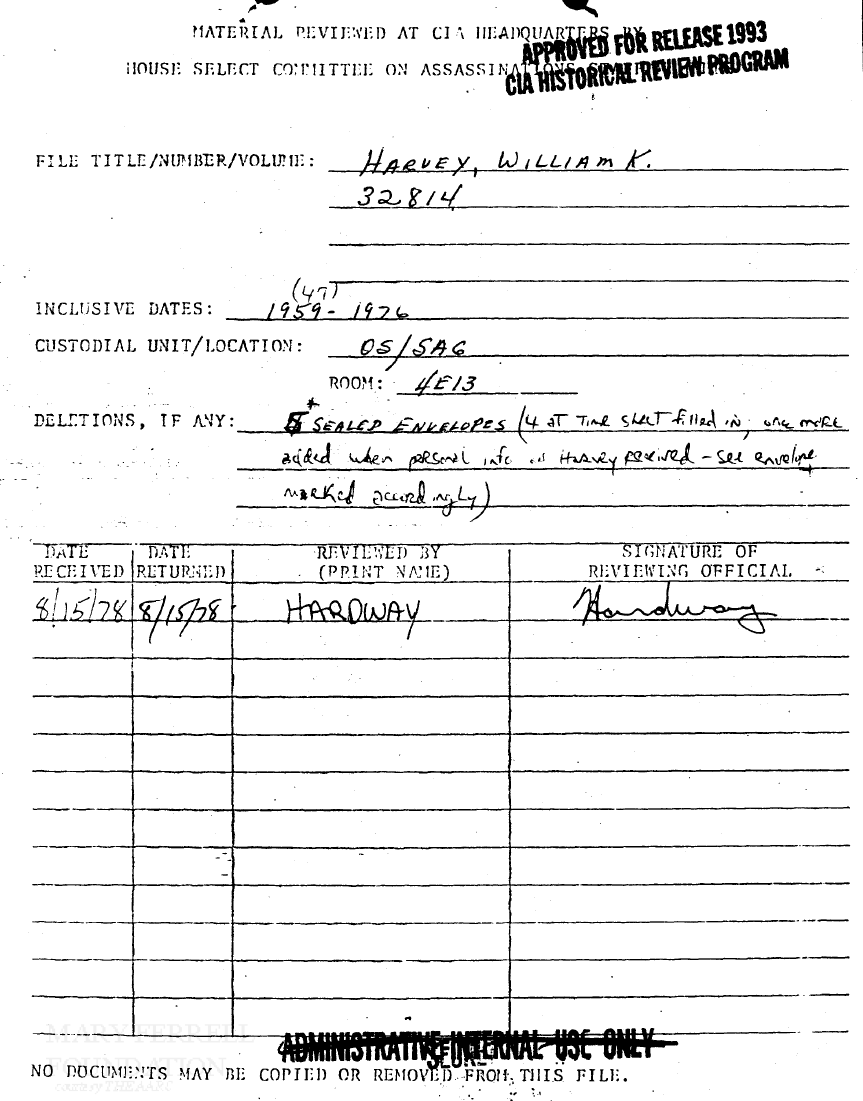 MATERIAL REVIEWED AT CIA HEADQUARTERS BY
HOUSE SELECT COMMITTEE ON ASSASSINATIONS
APPROVED FOR RELEASE 1993
CIA HISTORICAL REVIEW PROGRAM
FILE TITLE/NUMBER/VOLUME: HARVEY, WILLIAM K.
32814
(47)
INCLUSIVE DATES: 1959- 1976
CUSTODIAL UNIT/LOCATION: OS/SAG
ROOM: 4E13
DELETIONS, IF ANY: 5* SEALED ENVELOPES (4 at time sheet filled in, one more
added when personal info on Harvey received - see envelope
marked accordingly)
DATE RECEIVED DATE RETURNED REVIEWED BY (PRINT NAME) SIGNATURE OF REVIEWING OFFICIAL
8/15/78 8/15/78 HARDWAY Hardway
MARY FERRELL
FOUNDATION
courtesy THE AARC
ADMINISTRATIVE INTERNAL USE ONLY
NO DOCUMENTS MAY BE COPIED OR REMOVED FROM THIS FILE.